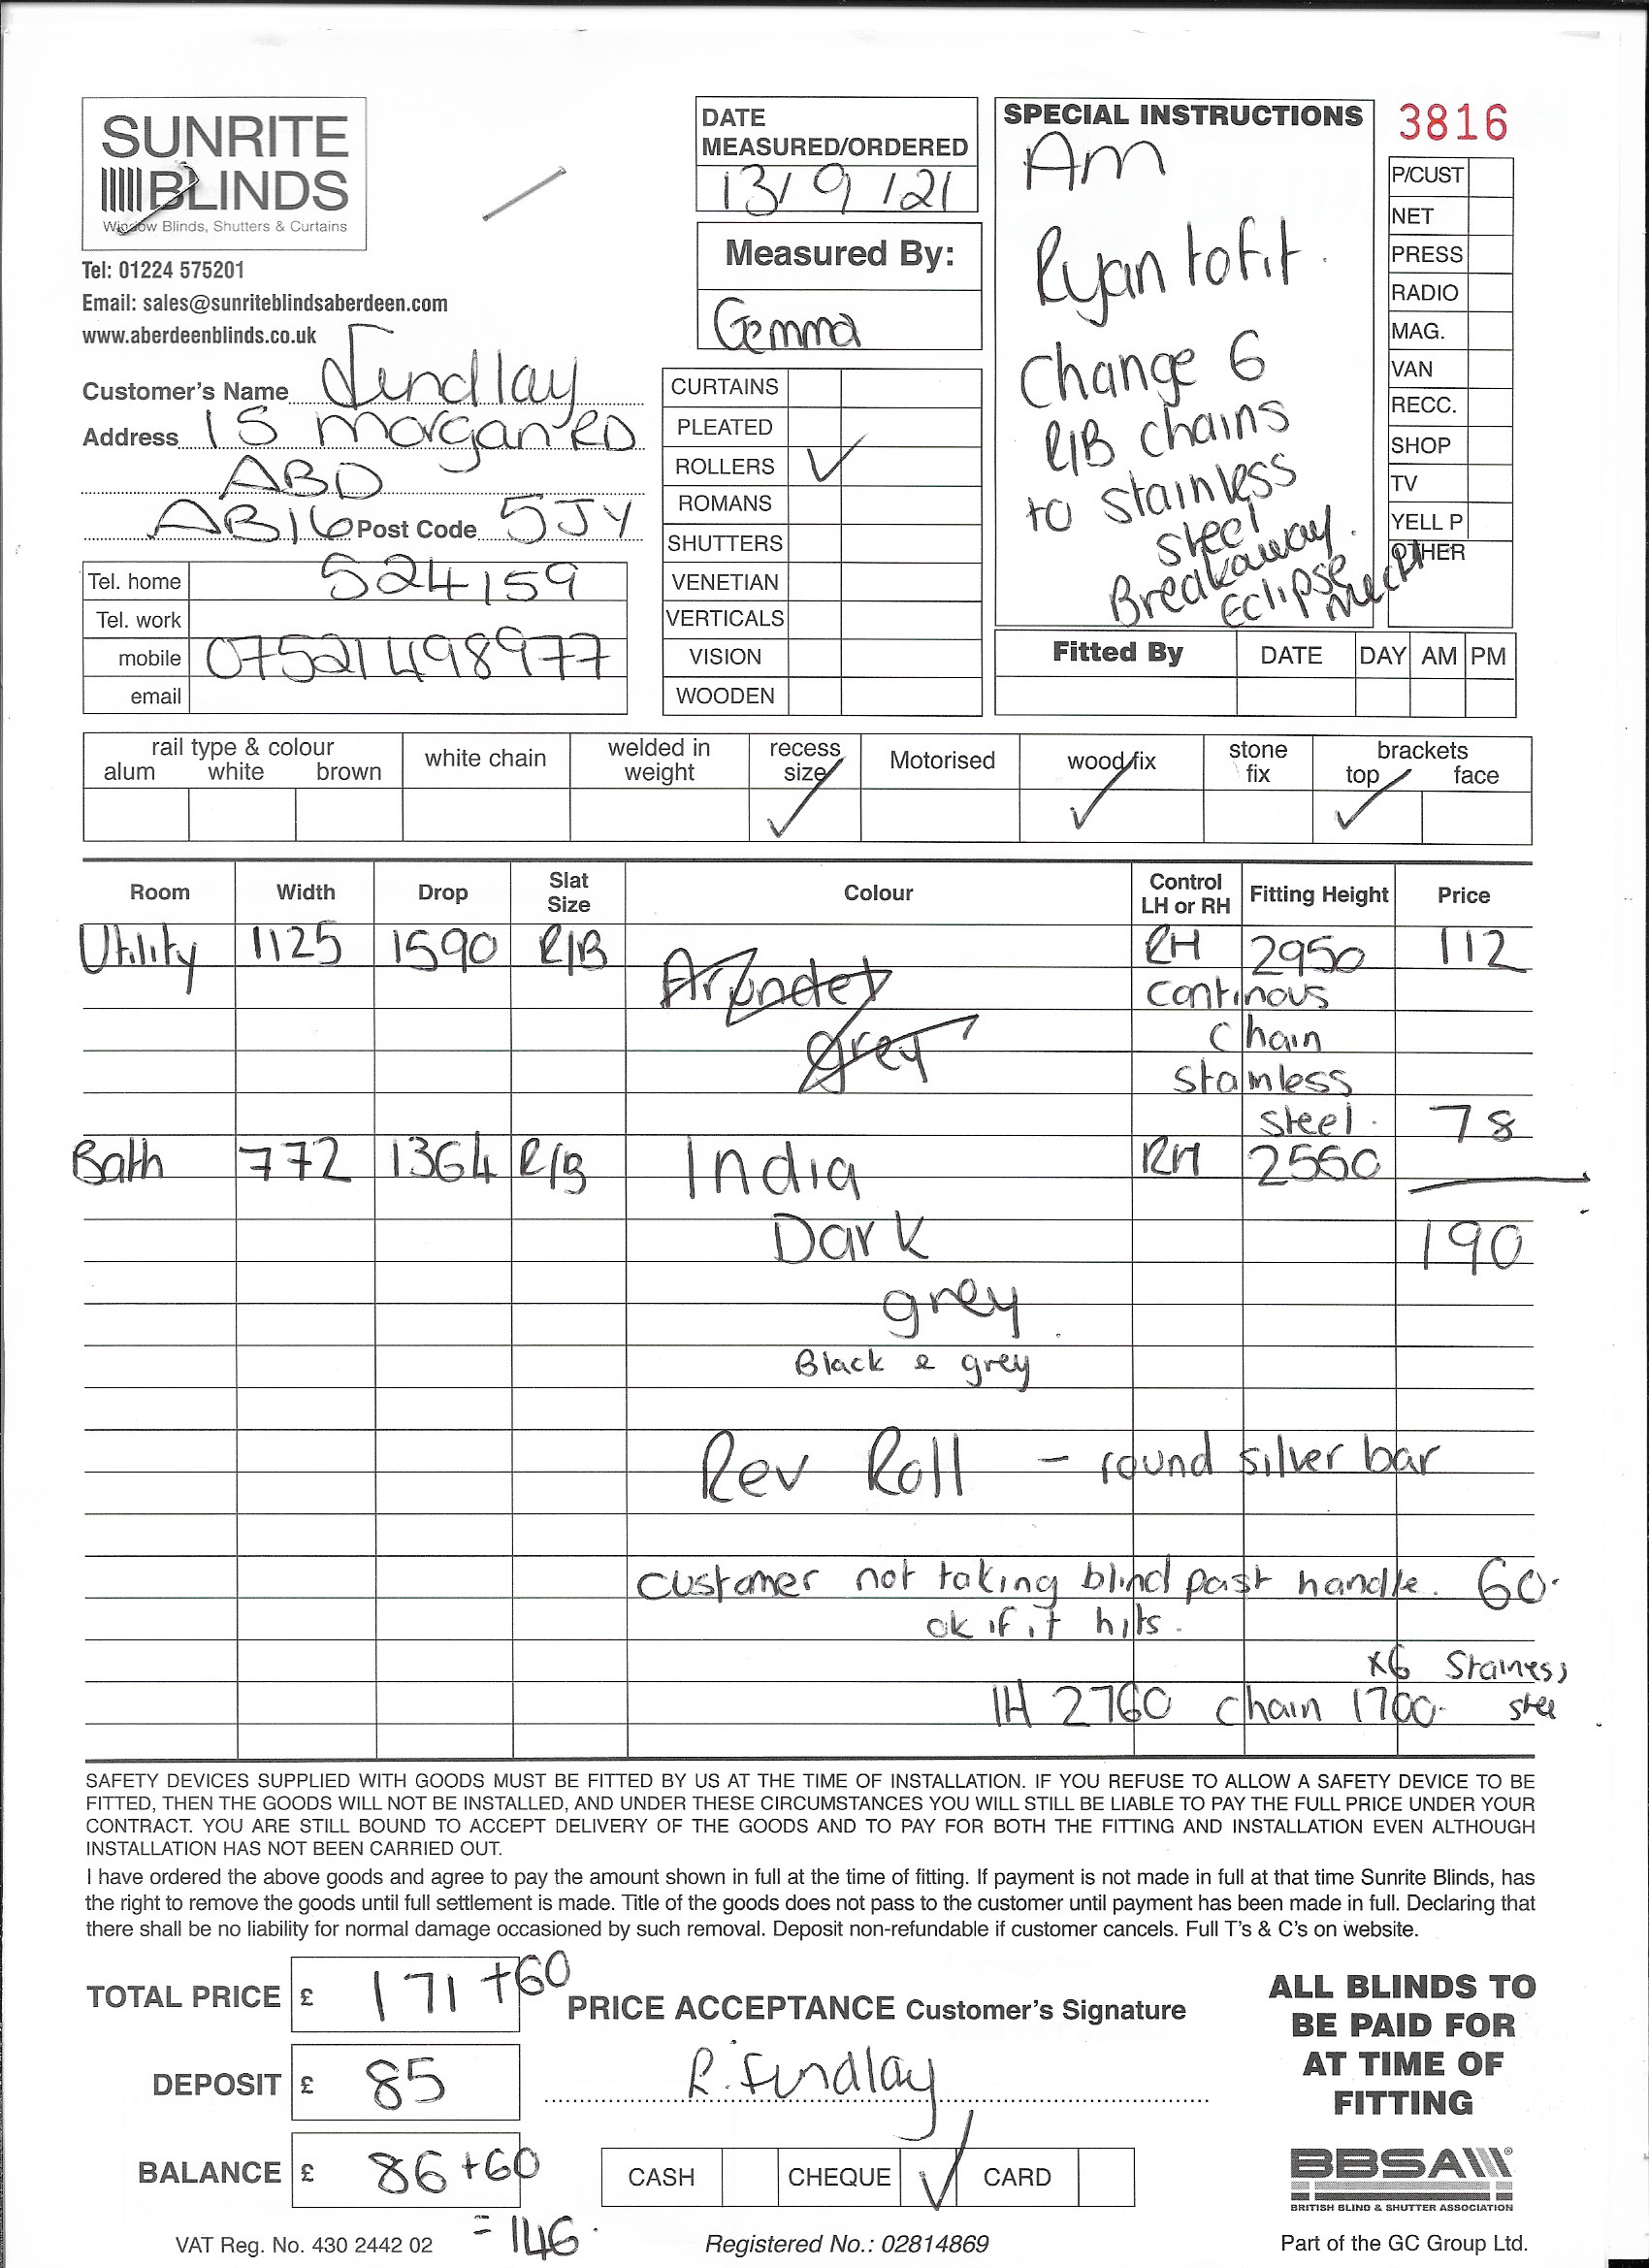 SUNRITE
BLINDS
Window Blinds, Shutters & Curtains
Tel: 01224 575201
Email: sales@sunriteblindsaberdeen.com
www.aberdeenblinds.co.uk
Customer's Name Findlay
Address 15 Morgan RD
ABD
AB16 Post Code 5JY
Tel. home 524159
Tel. work
mobile 07521498977
email
DATE
MEASURED/ORDERED
13/9/21
Measured By:
Gemma
CURTAINS
PLEATED
ROLLERS ✓
ROMANS
SHUTTERS
VENETIAN
VERTICALS
VISION
WOODEN
SPECIAL INSTRUCTIONS
Am
Ryan to fit.
Change 6
R/B chains
to stainless
steel
Breakaway.
Eclipse mech
3816
P/CUST
NET
PRESS
RADIO
MAG.
VAN
RECC.
SHOP
TV
YELL P
OTHER
Fitted By DATE DAY AM PM
rail type & colour
alum white brown
white chain
welded in
weight
recess
size ✓
Motorised
wood fix ✓
stone
fix
brackets
top ✓ face
Room Width Drop Slat Size Colour Control LH or RH Fitting Height Price
Utility 1125 1590 R/B Arundel RH 2950 112
continous
grey chain
stainless
steel. 78
Bath 772 1364 R/B India RH 2550
Dark 190
grey.
Black & grey
Rev Roll – round silver bar
customer not taking blind past handle. 60.
ok if it hits.
x6 Stainess
IH 2760 chain 1700. stee
SAFETY DEVICES SUPPLIED WITH GOODS MUST BE FITTED BY US AT THE TIME OF INSTALLATION. IF YOU REFUSE TO ALLOW A SAFETY DEVICE TO BE
FITTED, THEN THE GOODS WILL NOT BE INSTALLED, AND UNDER THESE CIRCUMSTANCES YOU WILL STILL BE LIABLE TO PAY THE FULL PRICE UNDER YOUR
CONTRACT. YOU ARE STILL BOUND TO ACCEPT DELIVERY OF THE GOODS AND TO PAY FOR BOTH THE FITTING AND INSTALLATION EVEN ALTHOUGH
INSTALLATION HAS NOT BEEN CARRIED OUT.
I have ordered the above goods and agree to pay the amount shown in full at the time of fitting. If payment is not made in full at that time Sunrite Blinds, has
the right to remove the goods until full settlement is made. Title of the goods does not pass to the customer until payment has been made in full. Declaring that
there shall be no liability for normal damage occasioned by such removal. Deposit non-refundable if customer cancels. Full T's & C's on website.
TOTAL PRICE £ 171 +60
DEPOSIT £ 85
BALANCE £ 86 +60
= 146.
PRICE ACCEPTANCE Customer's Signature
R. Findlay
CASH CHEQUE ✓ CARD
ALL BLINDS TO
BE PAID FOR
AT TIME OF
FITTING
BBSA
BRITISH BLIND & SHUTTER ASSOCIATION
VAT Reg. No. 430 2442 02
Registered No.: 02814869
Part of the GC Group Ltd.